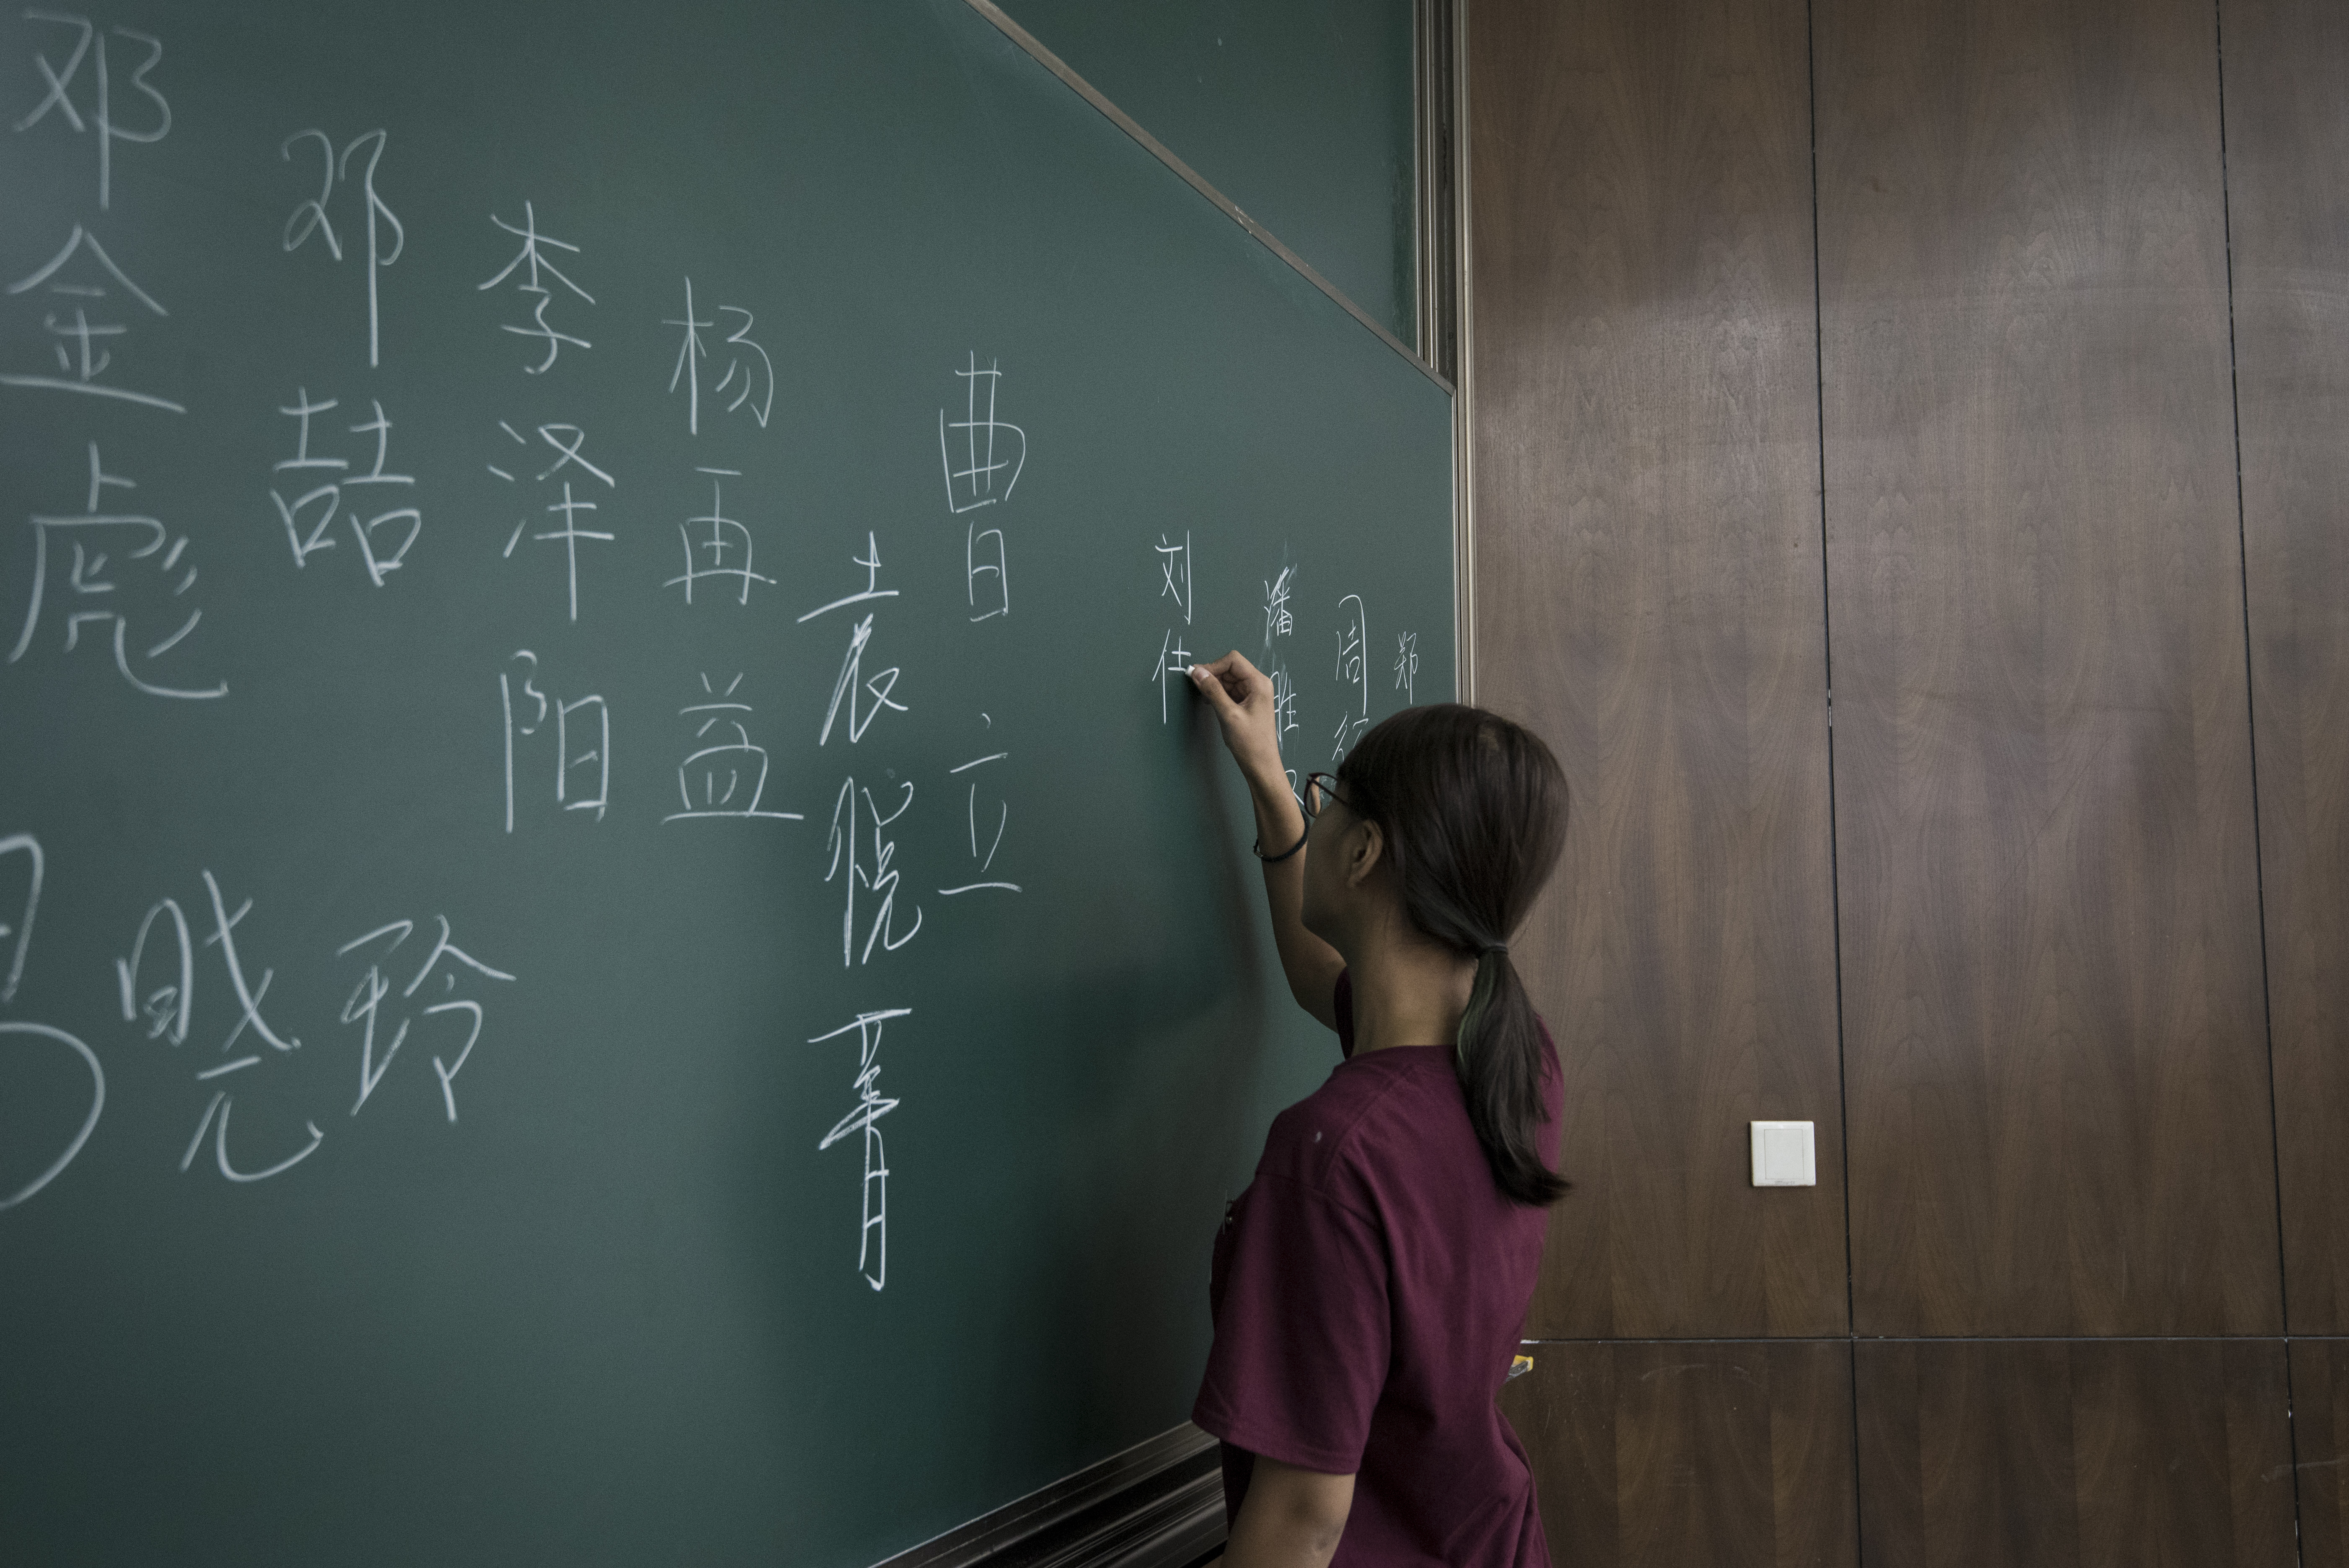 邓金彪
邓喆
李泽阳
杨再益
袁悦菁
曹立
刘仕
潘胜
周
郑
晓玲